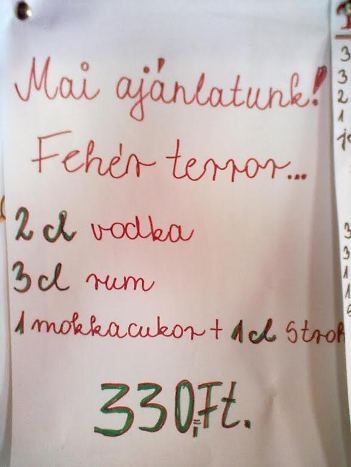 Mai ajánlatunk!
Fehér terror...
2 cl vodka
3 cl rum
1 mokkacukor + 1 cl Stroh
330,Ft.